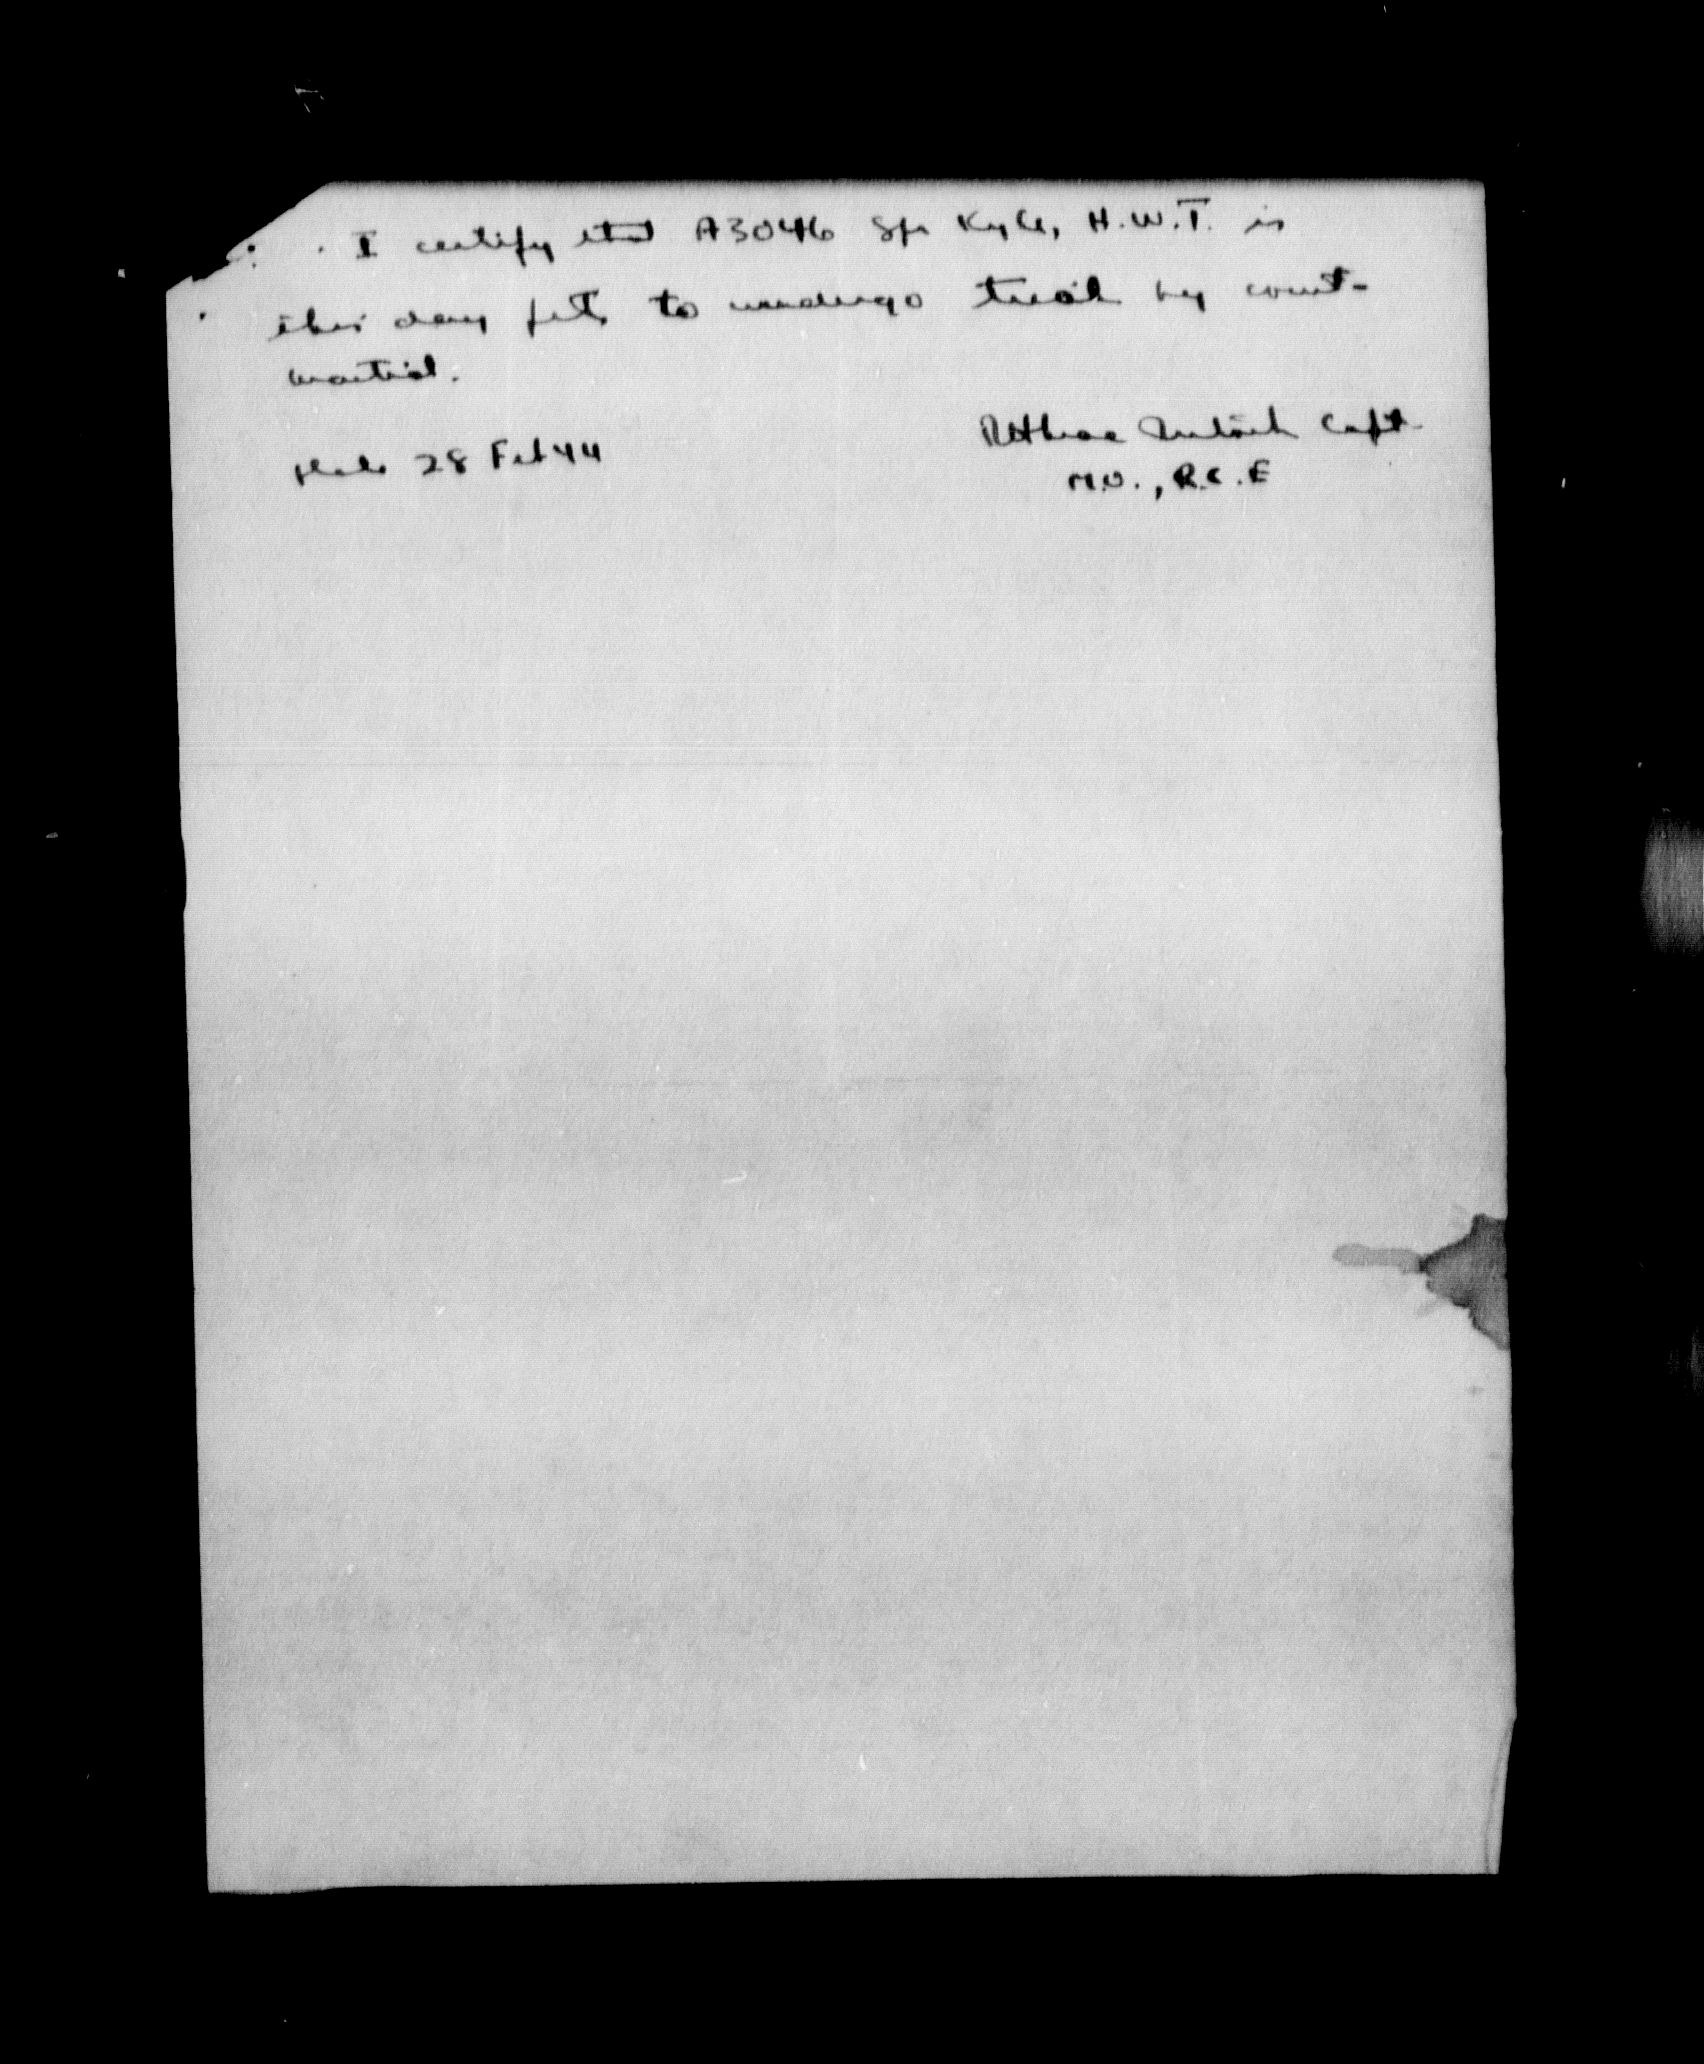 I certify that A3046 Spr Kyle, H.W.T. is
this day fit to undergo trial by court-
martial.
Capt
28 Feb 44
M.O., R.C.E